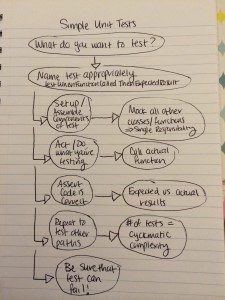 Simple Unit Tests
What do you want to test?
Name test appropriately
test WhenFunctionCalled ThenExpectedResult
Setup/
Assemble
components
of test
Mock all other
classes/functions
⇒ Single Responsibility
Act/Do
what you're
testing
Call actual
function
Assert
Code is
Correct
Expected vs actual
results
Repeat to
test other
paths
# of tests =
cyclomatic
complexity
Be sure that
test can
fail!